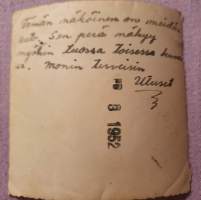 Tämän näköinen on meidän
auto. Sen perä näkyy
myöskin tuossa toisessa kuvas
sa. Monin terveisin
Utuset
8 1952